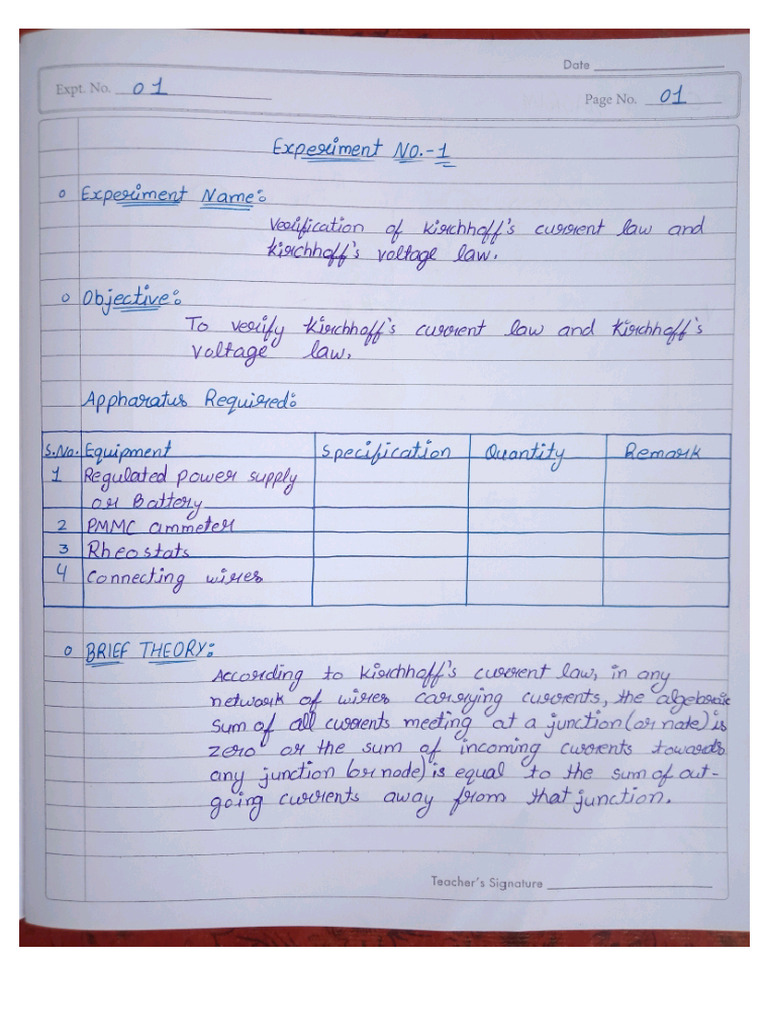 Date
Expt. No. 01
Page No. 01
Experiment No.-1
Experiment Name:
Verification of Kirchhoff's current law and
Kirchhoff's voltage law.
Objective:
To verify Kirchhoff's current law and Kirchhoff's
voltage law.
Appharatus Required:
S.No. Equipment Specification Quantity Remark
1 Regulated power supply
or Battery
2 PMMC ammeter
3 Rheostats
4 Connecting wires
BRIEF THEORY:
According to Kirchhoff's current law, in any
network of wires carrying currents, the algebraic
sum of all currents meeting at a junction (or node) is
zero or the sum of incoming currents towards
any junction (or node) is equal to the sum of out-
going currents away from that junction.
Teacher's Signature